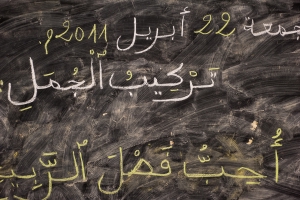 جمعة 22 أبريل 2011م
تَرْكِيبُ ٱلْجُمَلِ
أُحِبُّ فَصْلَ ٱلرَّبِيـ